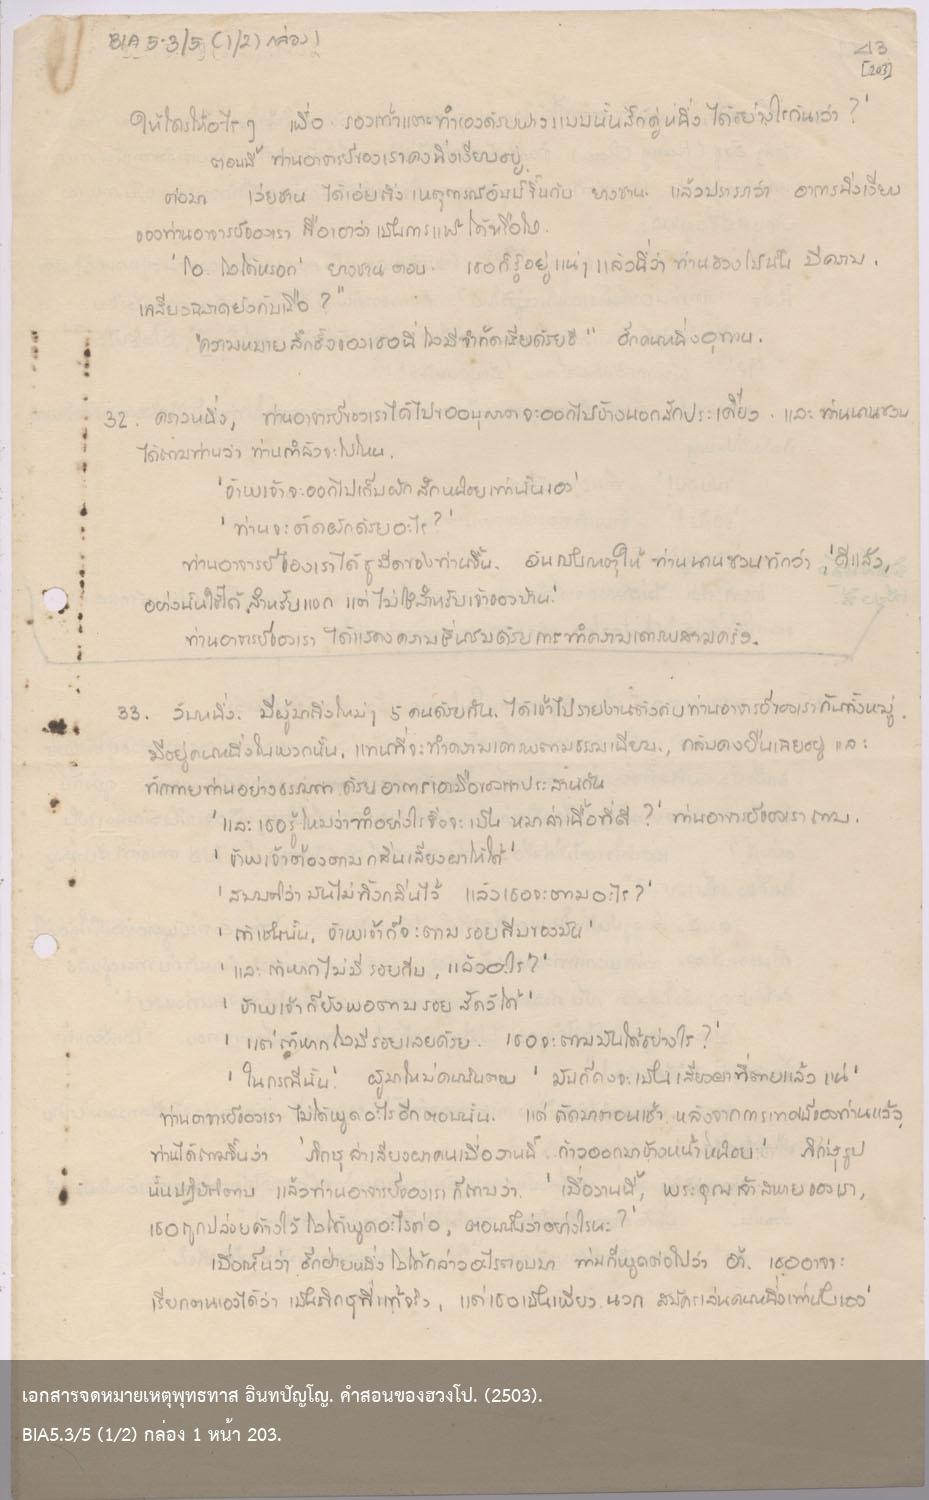 BIA 5.3/5 (1/2) กล่อง 1
43
[203]
ให้ใครให้อะไรๆ เพื่อ รองเท้าแตะทำเองด้วยฟางแบบนั้นสักคู่หนึ่ง ได้อย่างไรกันเล่า ?'
ตอนนี้ ท่านอาจารย์ของเราคงนิ่งเงียบอยู่.
ต่อมา เว่ยซาน ได้เอ่ยถึง เหตุการณ์อันนี้ขึ้นกับ ยางซาน. แล้วปรารภว่า อาการนิ่งเงียบ
ของท่านอาจารย์ของเรา ถือเอาว่าเป็นการแพ้ ได้หรือไม่.
'ไม่ ไม่ได้หรอก' ยางซาน ตอบ. เธอก็รู้อยู่แน่ๆ แล้วนี่ว่า ท่านฮวงโปนั้น มีความ
เฉลียวฉลาดยังกับเสือ ?"
"ความหมายลึกซึ้งของเธอนี่ ไม่มีขีดจำกัดเสียด้วยซี" อีกคนหนึ่งอุทาน.
32. คราวหนึ่ง, ท่านอาจารย์ของเราได้ไปขออนุญาตจะออกไปข้างนอกสักประเดี๋ยว. และ ท่านนานชวน
ได้ถามท่านว่า ท่านกำลังจะไปไหน.
'ข้าพเจ้าจะออกไปเก็บผักสักหน่อยเท่านั้นเอง'
'ท่านจะตัดผักด้วยอะไร?'
ท่านอาจารย์ของเราได้ชูมีดของท่านขึ้น. อันเป็นเหตุให้ ท่านนานชวนทักว่า 'ดีแล้ว,
อย่างนั้นใช้ได้ สำหรับแขก แต่ไม่ใช่สำหรับเจ้าของบ้าน'
ท่านอาจารย์ของเรา ได้แสดงความชื่นชมด้วยการทำความเคารพสามครั้ง.
33. วันหนึ่ง. มีผู้มาถึงใหม่ๆ 5 คนด้วยกัน. ได้เข้าไปรายงานตัวกับท่านอาจารย์ของเรากันทั้งหมู่.
มีอยู่คนหนึ่งในพวกนั้น, แทนที่จะทำความเคารพตามธรรมเนียม, กลับคงยืนเฉยอยู่ และ
ทักทายท่านอย่างธรรมดา ด้วยอาการเอามือของเขาประสานกัน
'และเธอรู้ไหมว่าทำอย่างไรจึงจะเป็น หมาล่าเนื้อที่ดี ?' ท่านอาจารย์ของเราถาม.
'ข้าพเจ้าต้องตามกลิ่นเลียงผาให้ได้'
'สมมติว่ามันไม่ทิ้งกลิ่นไว้ แล้วเธอจะตามอะไร?'
'ถ้าเช่นนั้น, ข้าพเจ้าก็จะตามรอยกีบของมัน'
'และถ้าหากไม่มีรอยกีบ, แล้วอะไร?'
'ข้าพเจ้าก็ยังพอตามรอยสัตว์ได้'
'แต่ถ้าหากไม่มีรอยเลยด้วย. เธอจะตามมันได้อย่างไร?'
'ในกรณีนั้น' ผู้มาใหม่คนนั้นตอบ 'มันก็คงจะเป็นเลียงผาที่ตายแล้วแน่'
ท่านอาจารย์ของเรา ไม่ได้พูดอะไรอีกตอนนั้น. แต่ ถัดมาตอนเช้า หลังจากการเทศน์ของท่านแล้ว,
ท่านได้ถามขึ้นว่า 'ภิกษุล่าเลียงผาคนเมื่อวานนี้ ก้าวออกมาข้างหน้าหน่อย' ภิกษุรูป
นั้นปฏิบัติตาม แล้วท่านอาจารย์ของเราก็ถามว่า. 'เมื่อวานนี้, พระคุณเจ้าสหายของเรา,
เธอถูกปล่อยค้างไว้ ไม่ได้พูดอะไรต่อ, ตอนนั้นว่าอย่างไรนะ?'
เมื่อเห็นว่า อีกฝ่ายหนึ่งไม่ได้กล่าวอะไรตอบมา ท่านก็พูดต่อไปว่า อ้า, เธออาจจะ
เรียกตนเองได้ว่า เป็นภิกษุที่แท้จริง, แต่เธอเป็นเพียง นวก สมัครเล่นคนหนึ่งเท่านั้นเอง'
เอกสารจดหมายเหตุพุทธทาส อินทปัญโญ. คำสอนของฮวงโป. (2503).
BIA5.3/5 (1/2) กล่อง 1 หน้า 203.